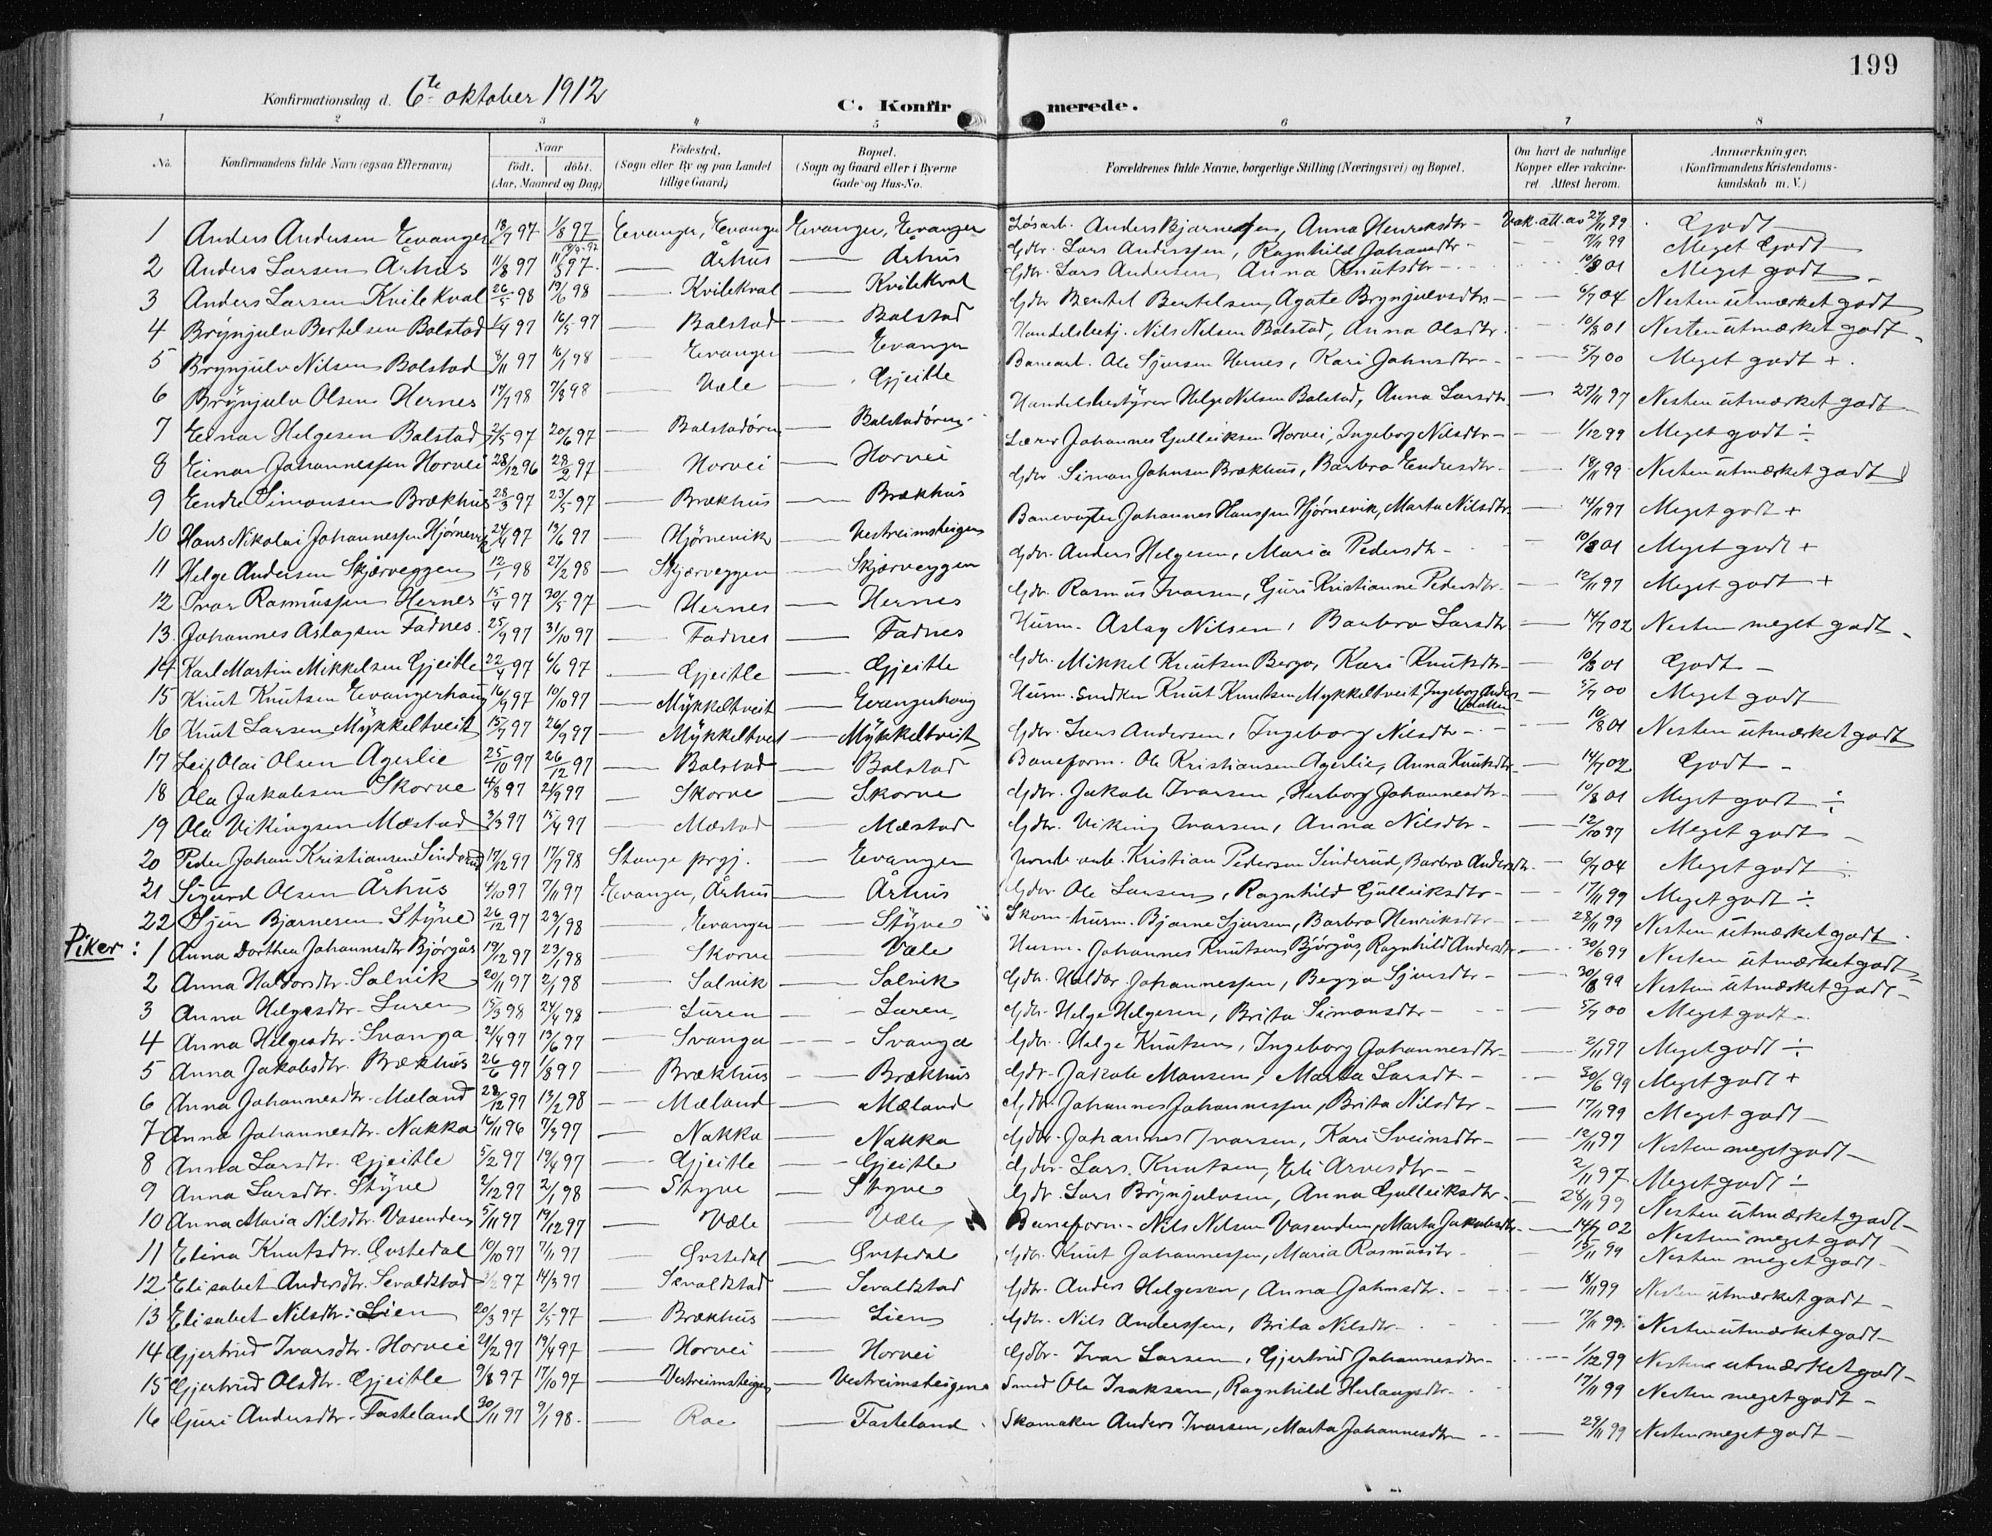 199
Konfirmationsdag d. 6te oktober 1912
C. Konfirmerede.
1 2 3 4 5 6 7 8
No. Konfirmandens fulde Navn (ogsaa Efternavn) Naar født. døbt. (Aar, Maaned og Dag) Fødested. (Sogn eller By og paa Landet tillige Gaard) Bopæl. (Sogn og Gaard eller i Byerne Gade og Hus-No. Forældrenes fulde Navne, borgerlige Stilling (Næringsvei) og Bopæl. Om havt de naturlige Kopper eller vakcineret Attest herom. Anmærkninger. (Konfirmandens Kristendomskundskab m. V.)
1 Anders Andersen Evanger 18/7 97 1/8 97 Evanger, Evanger Evanger, Evanger Løsarb. Anders Bjarnesen, Anna Henriksdtr - Vak. att. av 27/11 99 Godt
2 Anders Larsen Århus 11/8 97 — Århus — Århus Gdbr. Lars Anderssen, Ragnhild Johansdtr - 7/11 99 Meget Godt
3 Anders Larsen Kvilekval 26/5 98 19/6 98 — Kvilekval — Kvilekval Gdbr. Lars Andersen, Anna Knutsdtr - 10/8 01 Meget godt -
4 Brynjulv Bertelsen Bolstad 1/4 97 16/5 97 — Bolstad — Bolstad Gdbr Bertel Bertelsen, Agate Brynjulvsdtr - 6/7 04 Nesten utmærket godt
5 Brynjulv Nilsen Bolstad 8/11 97 16/1 98 — Evanger — Evanger Handelsbetj. Nils Nilsen Bolstad, Anna Olsdtr. 10/8 01 Nesten utmærket godt -
6 Brynjulv Olsen Hernes 17/7 98 7/8 98 — Væle — Gjeitle Banearb. Ole Sjursen Hernes, Kari Johnsdtr - 5/7 00 Meget godt +
7 Einar Helgesen Bolstad 2/5 97 20/6 97 — Bolstadøren — Bolstadøren Handelsbestyrer Helge Nilsen Bolstad, Anna Larsdtr. — 27/11 97 Nesten utmærket godt
8 Einar Johannessen Horvei 28/12 96 28/2 97 — Horvei — Horvei Lærer Johannes Gulleiksen Horvei, Ingeborg Nilsdtr - 1/12 99 Meget godt ÷
9 Endre Simonsen Brækhus 28/3 97 23/5 97 — Brækhus — Brækhus Gdbr. Simon Johnsen Brækhus, Barbro Endresdtr - 19/11 99 Nesten utmærket godt
10 Hans Nikolai Johannessen Hjørnevik 24/4 97 13/6 97 — Hjørnevik — Vestreimsteigen Banevogter Johannes Hanssen Hjørnevik, Marta Nilsdtr. 14/11 97 Meget godt +
11 Helge Andersen Skjærveggen 12/1 98 27/2 98 — Skjærveggen — Skjærveggen Gdbr. Anders Helgesen, Maria Pedersdtr - 10/8 01 Meget godt +
12 Ivar Rasmussen Hernes 15/4 97 30/5 97 — Hernes — Hernes Gdbr. Rasmus Ivarsen, Guri Kristianne Pedersdtr. — 12/11 97 Meget godt +
13 Johannes Aslagsen Fadnes 25/9 97 31/10 97 — Fadnes — Fadnes Husm. Aslag Nilsen, Barbro Larsdtr — 14/7 02 Nesten meget godt -
14 Karl Martin Mikkelsen Gjeitle 22/4 97 6/6 97 — Gjeitle — Gjeitle Gdbr. Mikkel Knutsen Berge, Kari Knutsdtr - 10/8 01 Godt -
15 Knut Knutsen Evangerhaug 16/9 97 10/10 97 — Mykkeltveit — Evangerhaug Husm. snedker Knut Knutsen Mykkeltveit, Ingeborg Anders datter — 5/7 00 Meget godt
16 Knut Larsen Mykkeltveit 15/7 97 26/9 97 — Mykkeltveit — Mykkeltveit Gdbr. Lars Andersen, Ingeborg Nilsdtr - 10/8 01 Nesten utmærket godt
17 Leif Olai Olsen Agerlie 25/10 97 26/12 97 — Bolstad — Bolstad Baneform. Ole Kristiansen Agerlie, Anna Knutsdtr — 14/7 02 Godt -
18 Ola Jakobsen Skorve 4/8 97 21/9 97 — Skorve — Skorve Gdbr. Jakob Ivarsen, Herborg Johannesdtr - 10/8 01 Meget godt ÷
19 Ola Vikingsen Mæstad 3/3 97 15/4 97 — Mæstad — Mæstad Gdbr. Viking Ivarsen, Anna Nilsdtr - — 12/10 97 Meget godt -
20 Peder Johan Kristiansen Sinderud 17/12 97 17/7 98 Stange prgj. — Evanger Kristian Pedersen Sinderud, Barbro Andersdtr. - 6/7 04 Meget godt
21 Sigurd Olsen Århus 4/10 97 7/11 97 Evanger, Århus — Århus Gdbr. Ole Larsen, Ragnhild Gulleiksdtr - — 17/11 99 Meget godt ÷
22 Sjur Bjarnesen Styve 26/12 97 23/1 98 — Evanger — Styve Skom. husm. Bjarne Sjursen, Barbro Henriksdtr - — 28/11 99 Nesten utmærket godt
Piker: 1 Anna Dorthea Johannesdtr Bjørgås 19/12 97 23/1 98 — Skorve — Væle Husm. Johannes Knutsen Bjørgås, Ragnhild Andersdtr — 30/6 99 Nesten utmærket godt
2 Anna Haldorsdtr. Solvik 20/11 97 2/1 98 — Solvik — Solvik Gdbr. Haldor Johannessen, Begga Sjursdtr - — 30/8 99 Nesten utmærket godt -
3 Anna Helgesdtr. Luren 15/3 98 24/4 98 — Luren — Luren Gdbr. Helge Helgesen, Brita Simonsdtr - 5/7 00 Meget godt -
4 Anna Helgesdtr. Svanga 21/4 97 13/6 97 — Svanga — Svanga Gdbr. Helge Knutsen, Ingeborg Johannesdtr - — 2/11 97 Meget godt ÷
5 Anna Jakobsdtr. Brækhus 26/6 97 1/8 97 — Brækhus — Brækhus Gdbr. Jakob Monsen, Marta Larsdtr - 30/6 99 Meget godt +
6 Anna Johannesdtr. Mæland 28/12 97 13/2 98 — Mæland — Mæland Gdbr. Johannes Johannessen, Brita Nilsdtr - — 17/11 99 Meget godt -
7 Anna Johannesdtr. Nakka 16/11 96 7/3 97 — Nakka — Nakka Gdbr. Johannes Ivarsen, Kari Sveinsdtr - — 12/11 97 Nesten meget godt -
8 Anna Larsdtr. Gjeitle 5/2 97 19/4 97 — Gjeitle — Gjeitle Gdbr. Lars Knutsen, Eli Arvesdtr - 2/11 97 Meget godt ÷
9 Anna Larsdtr. Styve 2/12 97 2/1 98 — Styve — Styve Gdbr. Lars Brynjulvsen, Anna Gulleiksdtr - — 28/11 99 Nesten utmærket godt -
10 Anna Maria Nilsdtr. Vasenden 5/11 97 19/12 97 — Væle — Væle Baneform. Nils Nilsen Vasenden, Marta Jakobsdtr — 14/7 02 Nesten meget godt -
11 Elina Knutsdtr. Øvstedal 10/10 97 7/11 97 — Øvstedal — Øvstedal Gdbr. Knut Johannessen, Maria Rasmusdtr - — 15/11 99 Nesten meget godt -
12 Elisabet Andersdtr. Sevaldstad 97 14/3 97 — Sevaldstad — Sevaldstad Gdbr. Anders Helgesen, Anna Johnsdtr. — 18/11 99 Nesten utmærket godt -
13 Elisabet Nilsdtr. Lien 20/3 97 2/5 97 — Brækhus — Lien Gdbr. Nils Anderssen, Brita Nilsdtr - 17/11 99 Nesten utmærket godt -
14 Gjertrud Ivarsdtr. Horvei 21/2 97 19/4 97 — Horvei — Horvei Gdbr. Ivar Larsen, Gjertrud Johannesdtr - — 1/12 99 Nesten utmærket godt -
15 Gjertrud Olsdtr. Gjeitle 9/8 97 17/10 97 — Vestreimsteigen — Vestreimsteigen Smed Ole Isaksen, Ragnhild Herlaugsdtr - 17/11 99 Nesten meget godt -
16 Guri Andersdtr. Fasteland 30/11 97 9/1 98 — Roe — Fasteland Skomaker Anders Ivarsen, Marta Johannesdtr — 29/11 99 Nesten meget godt -